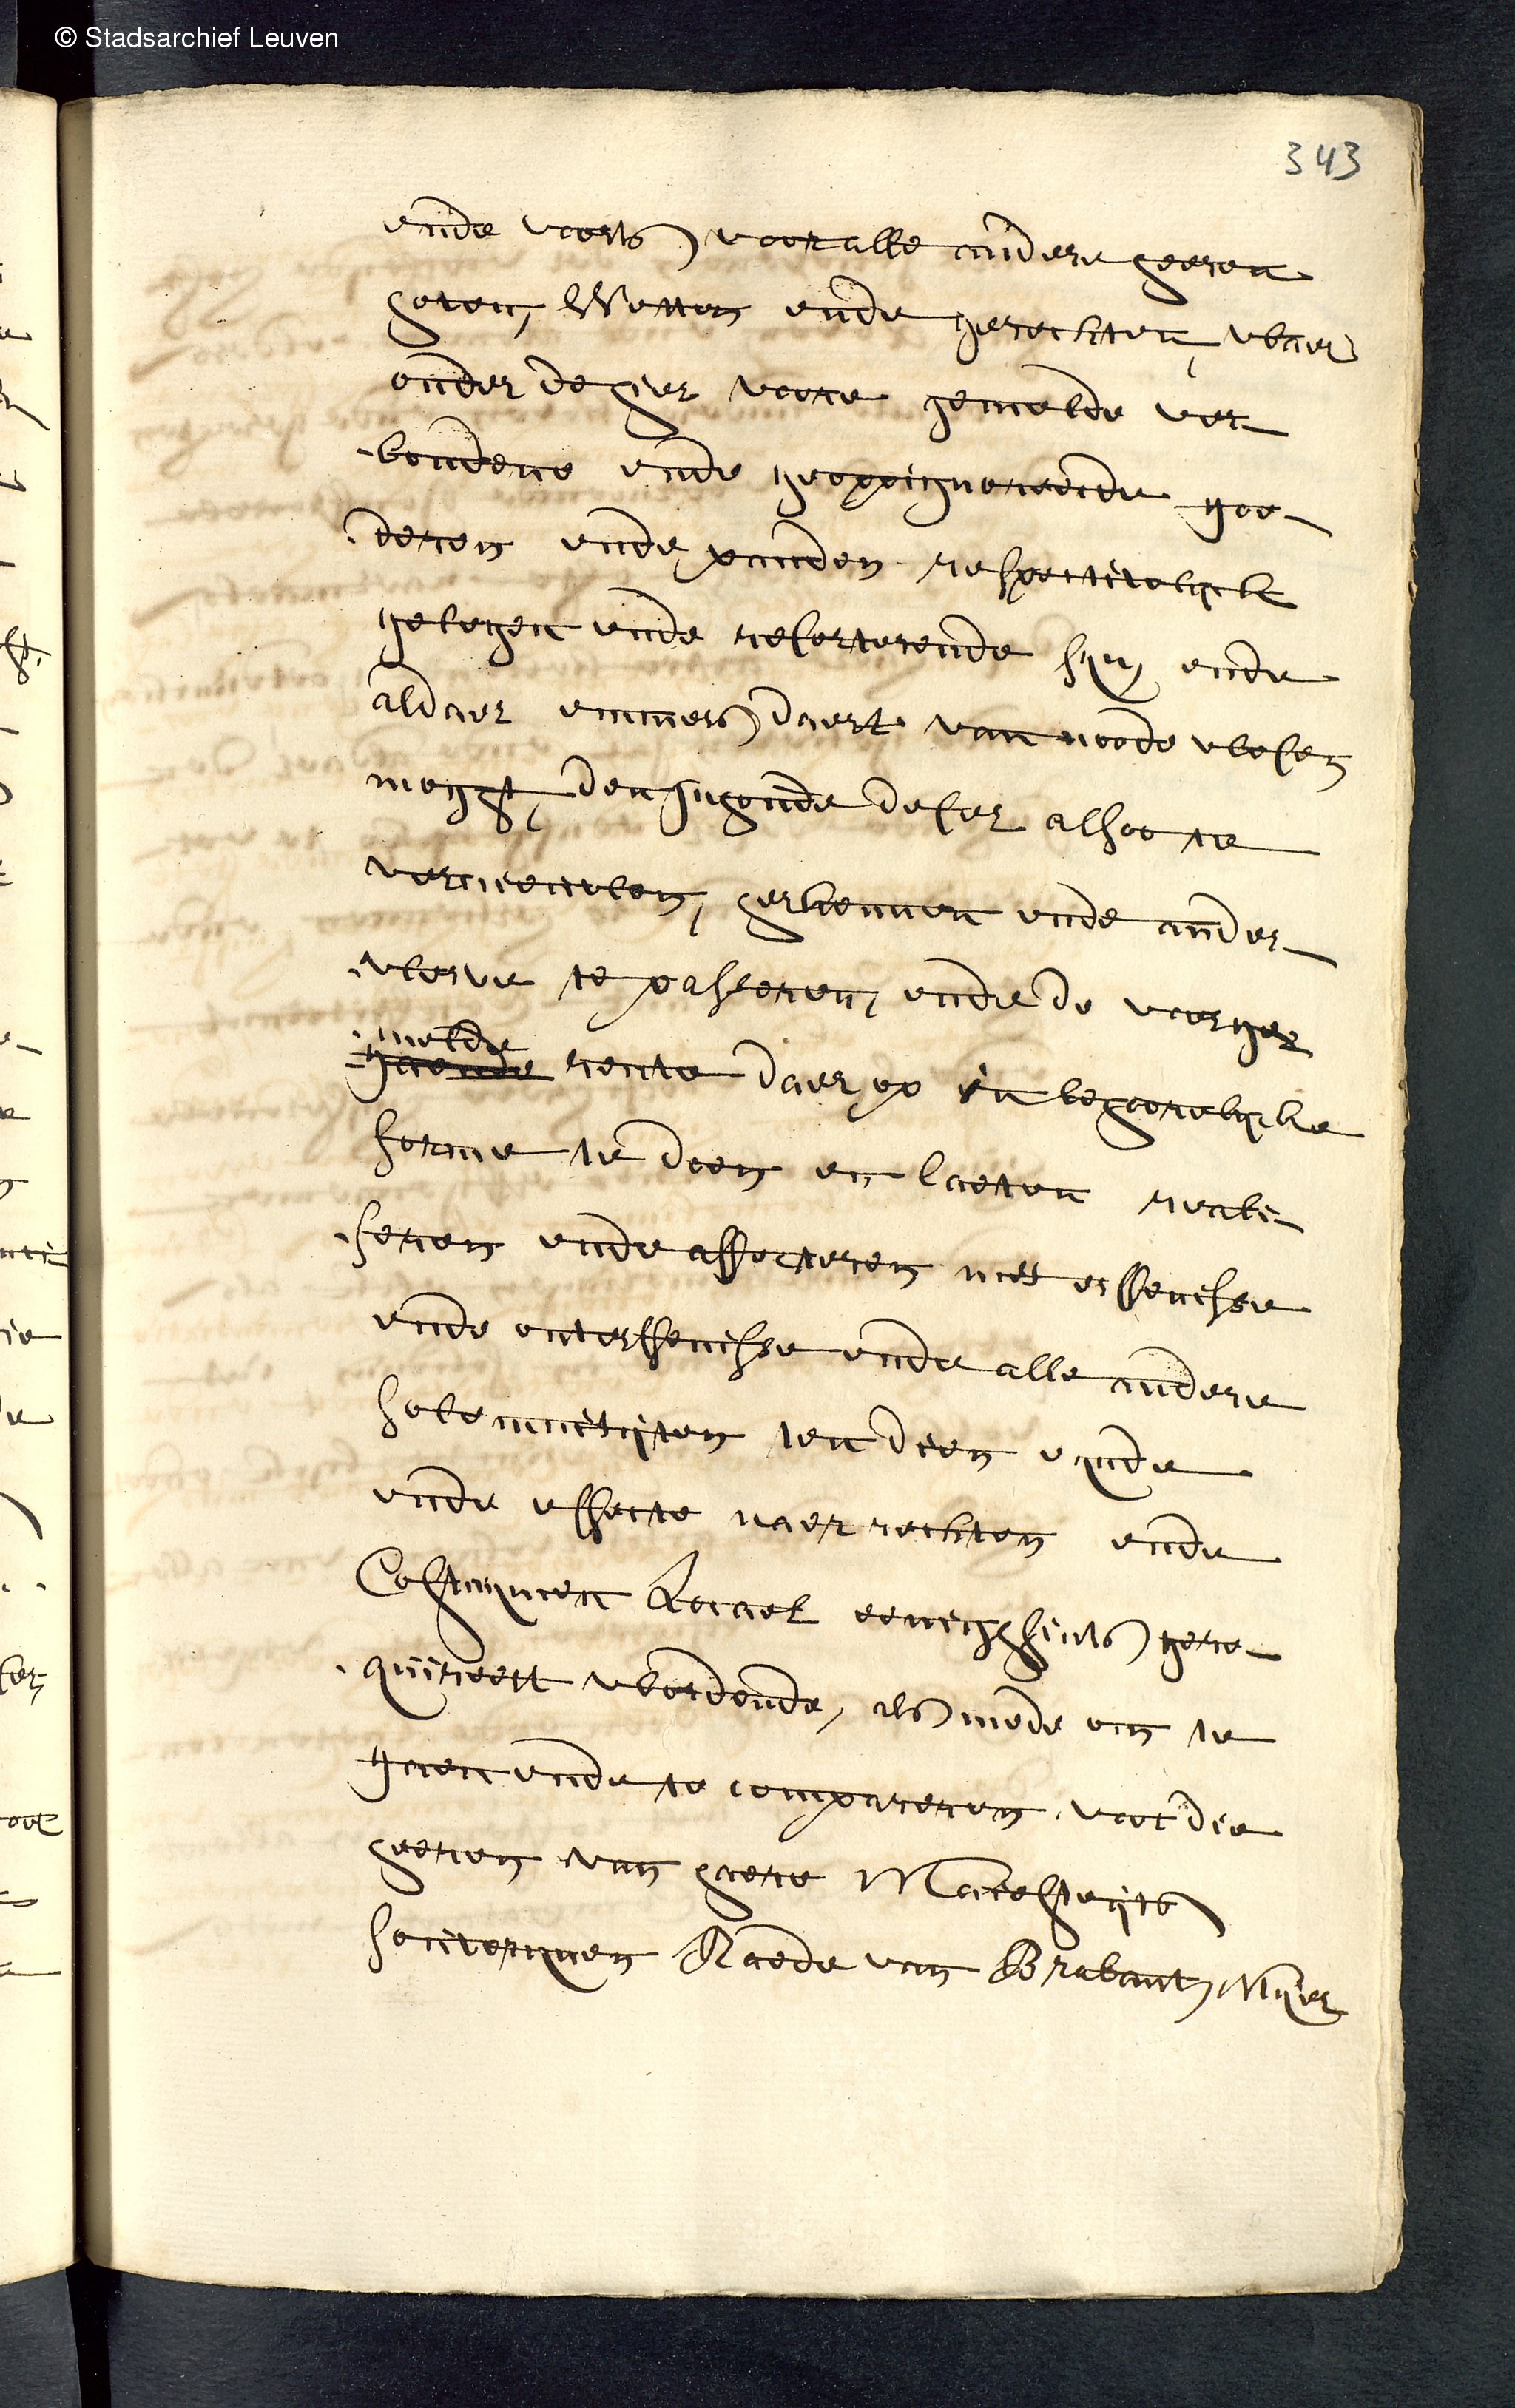 © Stadsarchief Leuven
343
ende voorts voor alle andere heeren
hoven, Wetten ende gerechten, waer
onder de hier vore gemelde ver-
bondene ende geoppignoreerde goe-
deren ende panden respectivelyck
gelegen ende resorterende syn ende
aldaer emmers daert van noode wesen
mocht, den inhoude deser alsoo te
vernieuwen, herkennen ende ander-
werve te passeren, ende de voorge-
melde
gaende rente daer op in behoorelycke
forme te doen en laeten reali-
seren ende affecteren met erffenisse
ende onterffenisse ende alle andere
solemniteyten ten dien eynde
ende effecte naer rechten ende
Costuymen Locael eenichsints gere-
quireert wordende, als mede om te
gaen ende te compareren voor die
heeren van haere Maiesteyts
souvereynen Raede van Brabant, Myer